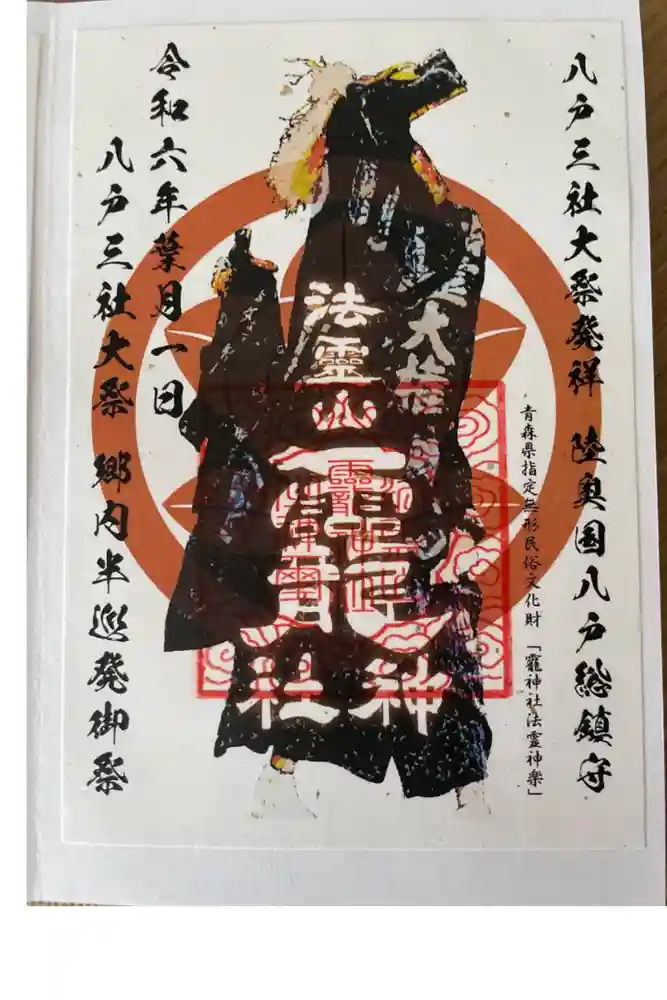 八戸三社大祭発祥 陸奥国八戸総鎮守
青森県指定無形民俗文化財 「龗神社法霊神楽」
法靈山
龗
神社
令和六年葉月一日
八戸三社大祭 郷内半巡発御祭